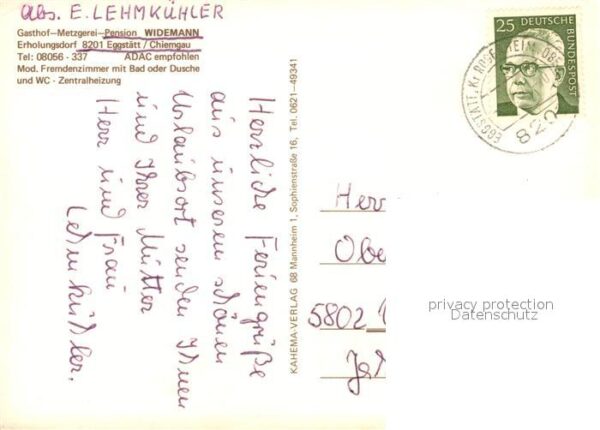 Abs. E. LEHMKÜHLER
Gasthof-Metzgerei-Pension WIDEMANN
Erholungsdorf 8201 Eggstätt/Chiemgau
Tel: 08056 - 337 ADAC empfohlen
Mod. Fremdenzimmer mit Bad oder Dusche
und WC - Zentralheizung
Herzliche Feriengrüße
aus unserem schönen
Urlaubsort senden Ihnen
und Ihrer Mutter
Herr und Frau
Lehmkühler.
KAHEMA-VERLAG 68 Mannheim 1, Sophienstraße 16, Tel. 0621-49341
25 DEUTSCHE BUNDESPOST
EGGSTÄTT, KR ROSENHEIM, OBB
820
Herr
Obe
5802
privacy protection
Datenschutz